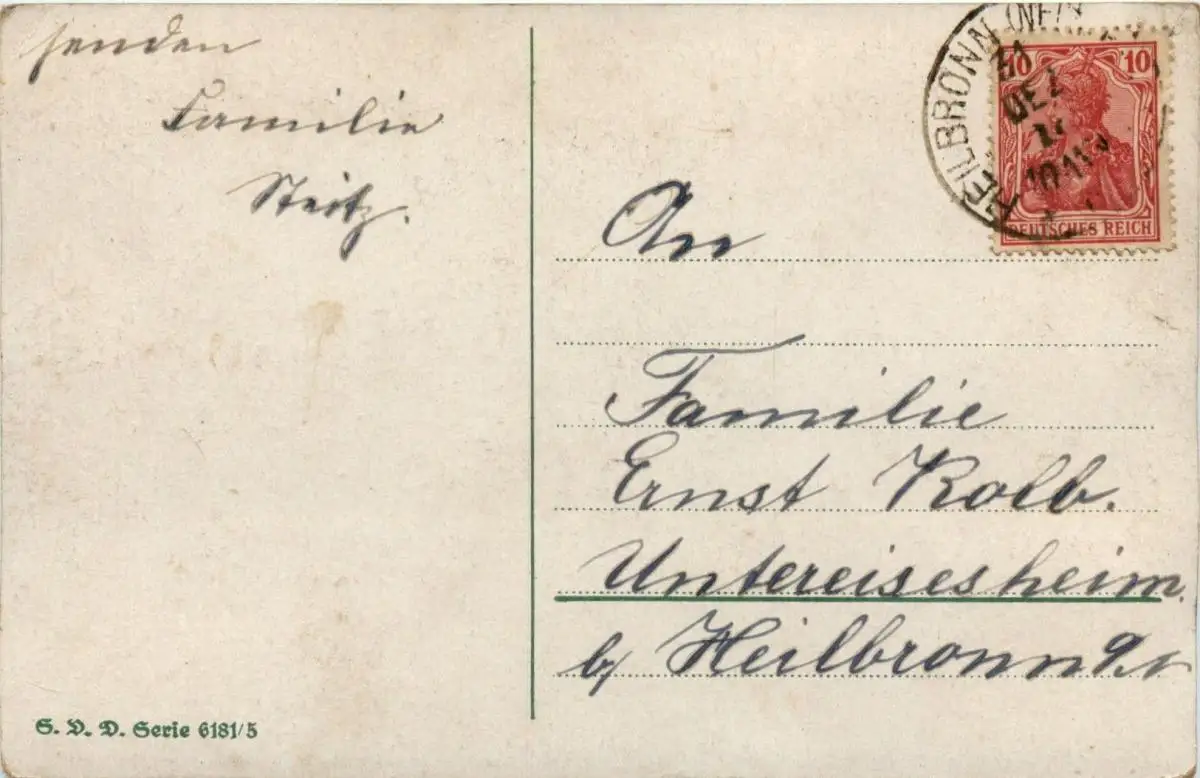 senden
Familie
Steitz.
HEILBRONN (NE
31
DEZ
10-11
10 10
DEUTSCHES REICH
An
Familie
Ernst Kolb.
Untereisesheim
b/ Heilbronn a/N
S. V. D. Serie 6181/5